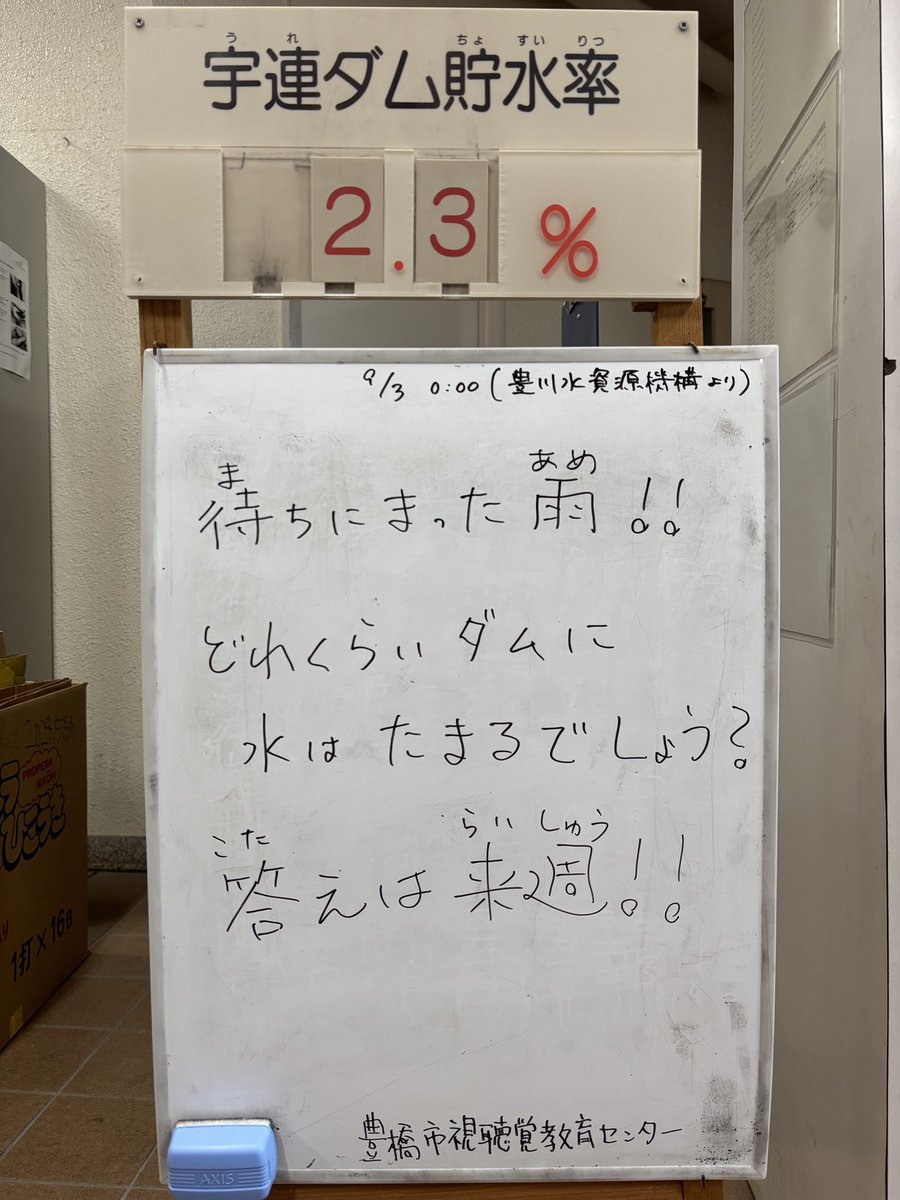 うれ ちょ すい りつ
宇連ダム貯水率
2.3%
9/3 0:00(豊川水資源機構より)
ま あめ
待ちにまった雨!!
どれくらいダムに
水はたまるでしょう?
こた らいしゅう
答えは来週!!
豊橋市視聴覚教育センター
AXIS
PROPERA
HIKOKI
ひこうき
1打×168